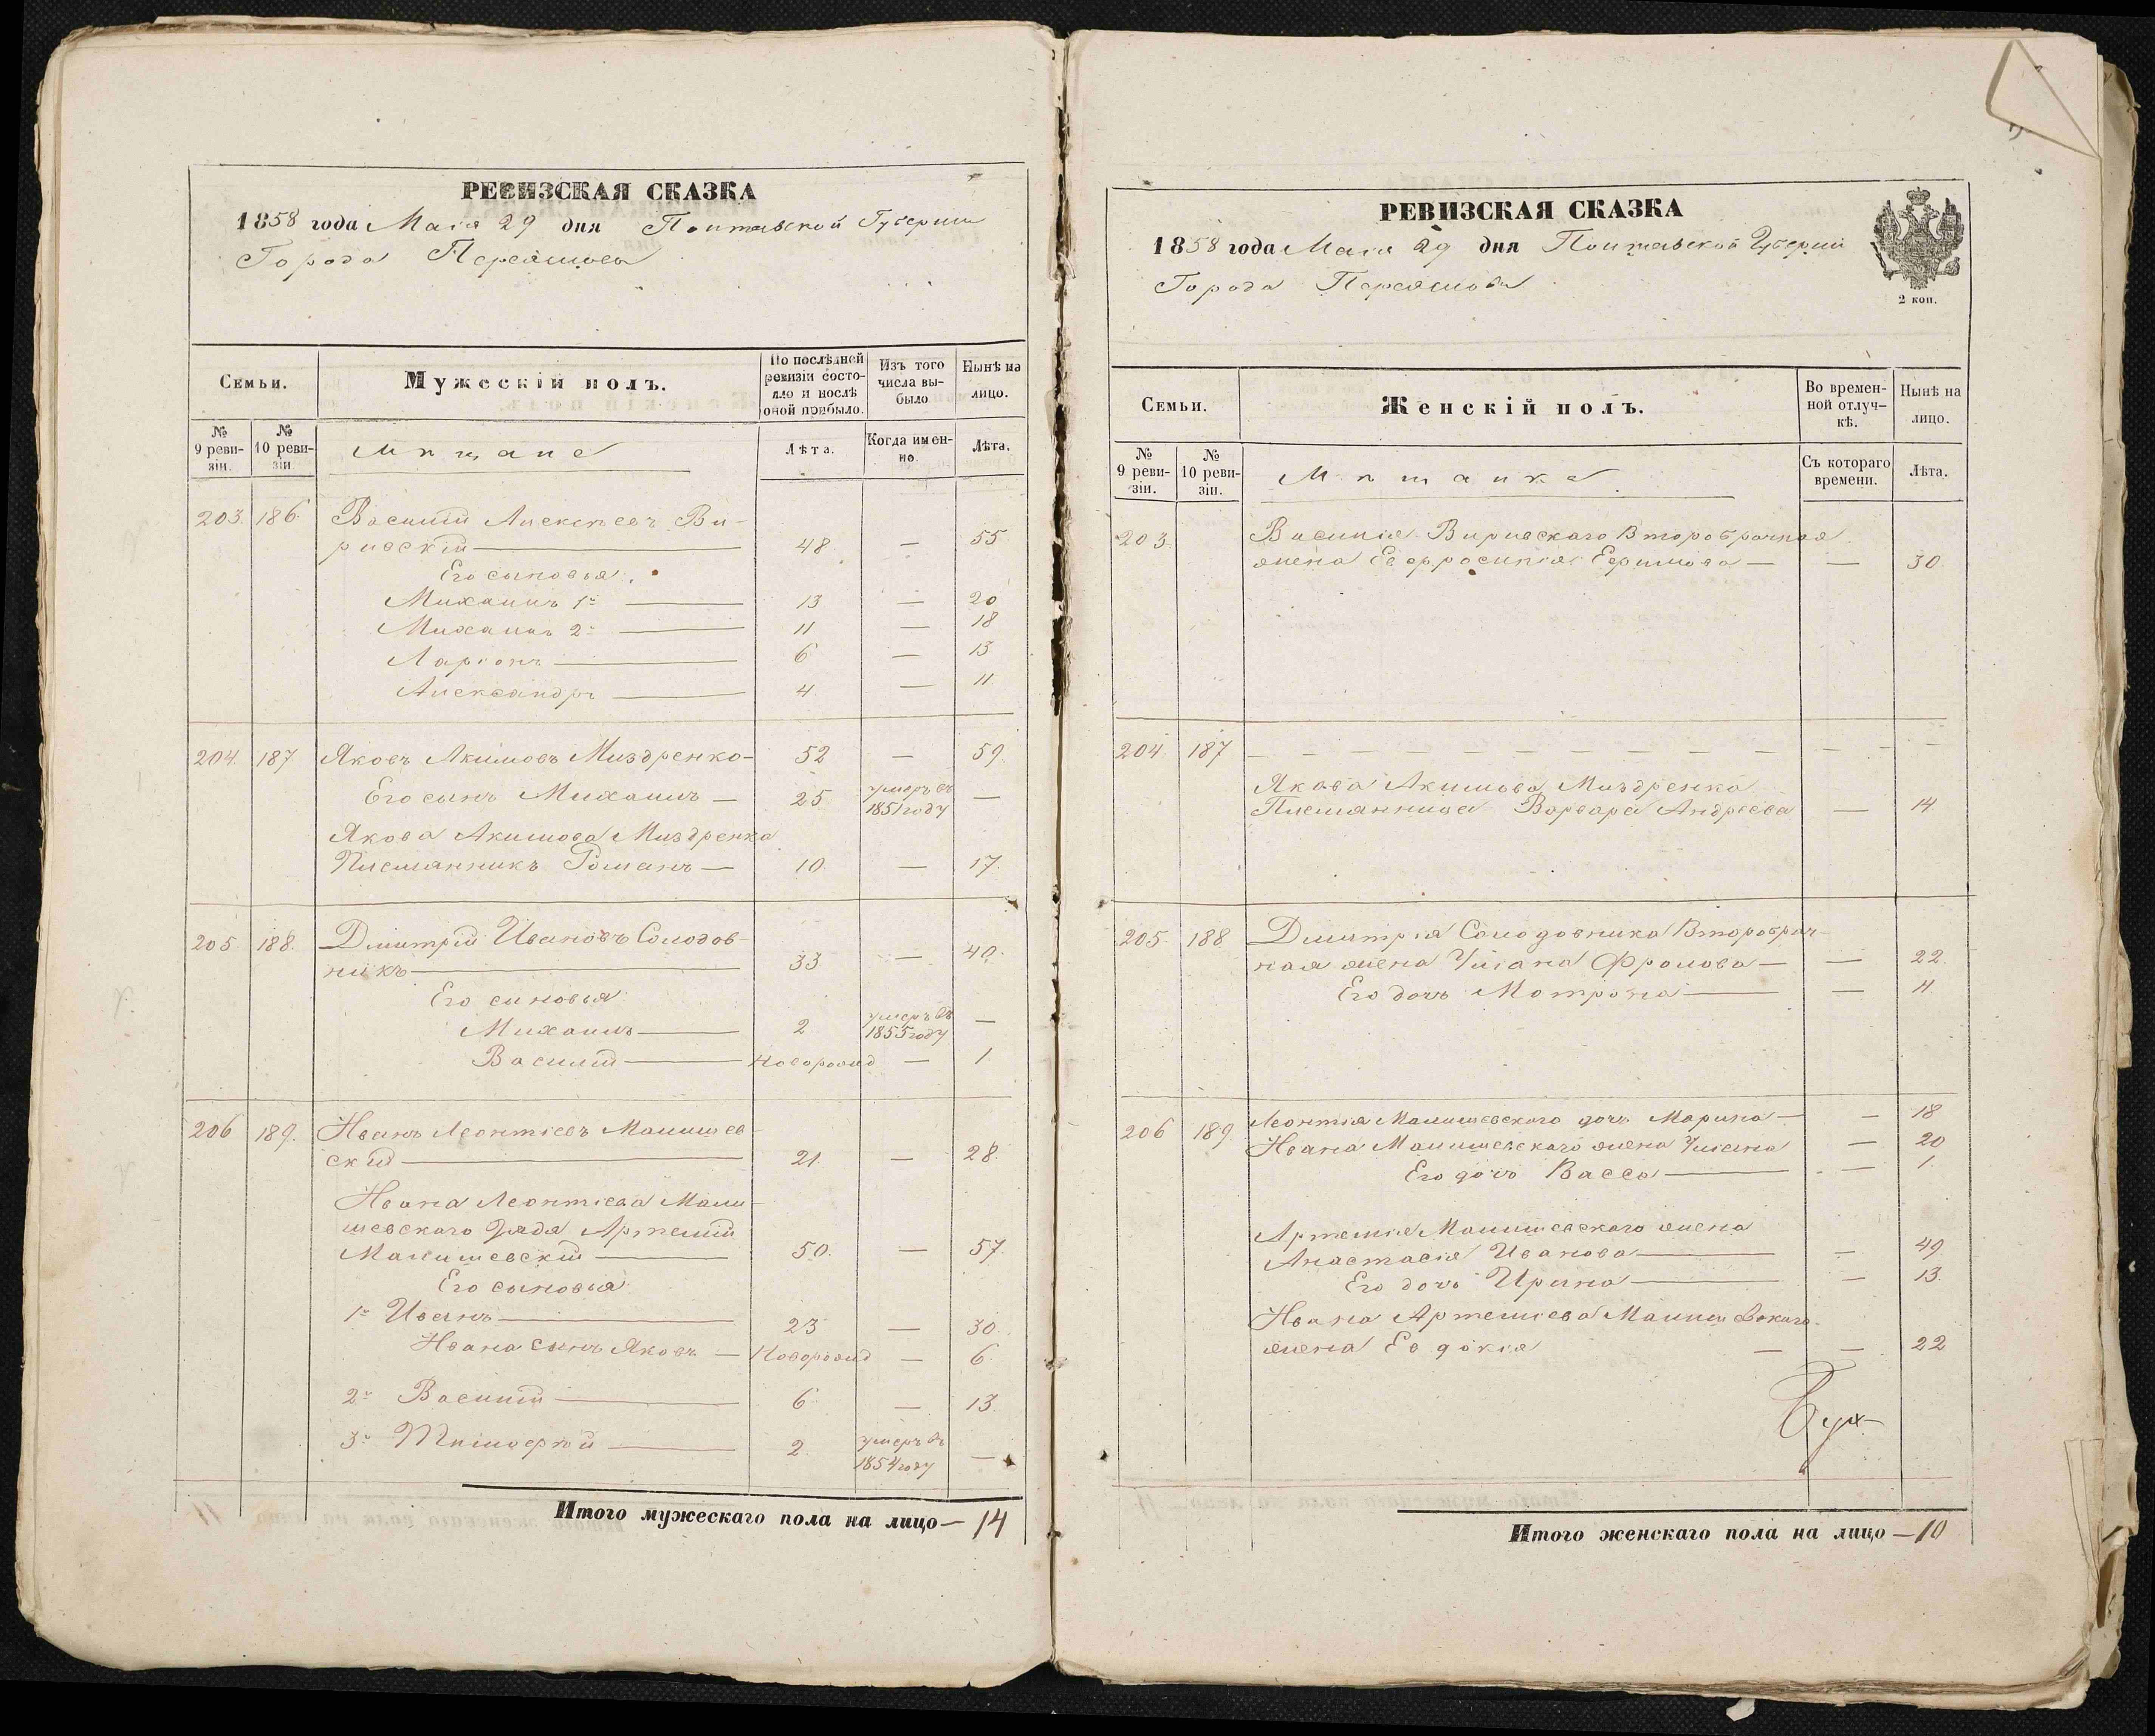 РЕВИЗСКАЯ СКАЗКА
1858 года Маія 29 дня Полтавской Губерніи
Города Переяслова
Семьи.
Мужескій полъ.
По послѣдней ревизіи состояло и послѣ оной прибыло.
Изъ того числа выбыло
Нынѣ на лицо.
№ 9 ревизіи.
№ 10 ревизіи
Мѣщане
Лѣта.
Когда именно.
Лѣта.
203. 186. Василій Алексѣевъ Ви-
ривскій — 48 — 55
Его сыновья.
Михаилъ 1й — 13 — 20
Михаилъ 2й — 11 — 18
Ларіонъ — 6 — 13
Александръ — 4. — 11.
204. 187 Яковъ Акимовъ Миздренко — 52 — 59.
Его сынъ Михаилъ — 25 умеръ въ 1851 году —
Якова Акимова Миздренка
Племянникъ Романъ — 10. — 17.
205. 188. Дмитрій Ивановъ Солодов-
никъ — 33 — 40.
Его сыновья
Михаилъ — 2 умеръ въ 1855 году —
Василій — Новорожд — 1
206 189. Иванъ Леонтіевъ Малишев-
скій — 21. — 28.
Ивана Леонтіева Мали-
шевскаго дядя Артемій
Малишевскій — 50. — 57.
Его сыновья
1й Иванъ — 23 — 30.
Ивана сынъ Яковъ — Новорожд — 6
2й Василій — 6 — 13.
3й Тимофей — 2. умеръ въ 1854 году —
Итого мужескаго пола на лицо — 14
РЕВИЗСКАЯ СКАЗКА
1858 года Маія 29 дня Полтавской Губерніи
Города Переяслова
2 коп.
Семьи.
Женскій полъ.
Во временной отлучкѣ.
Нынѣ на лицо.
№ 9 ревизіи.
№ 10 ревизіи.
Мѣщанке
Съ котораго времени.
Лѣта.
203. Василія Виривскаго Второбрачная
жена Евфросинія Ефимова — — 30.
204. 187 — — — — — — — — — — — —
Якова Акимова Миздренка
Племянница Варвара Андреева — 14.
205. 188. Дмитрія Солодовника Второбрач-
ная жена Уліана Фролова — — 22.
Его дочь Мотрона — — 11.
206 189. Леонтія Малишевскаго дочь Марина — — 18
Ивана Малишевскаго жена Уліана — 20
Его дочь Васса — — 1
Артемія Малишевскаго жена
Анастасія Иванова — — 49
Его дочь Ирина — — 13.
Ивана Артеміева Малишевскаго
жена Евдокія — — 22
Итого женскаго пола на лицо — 10